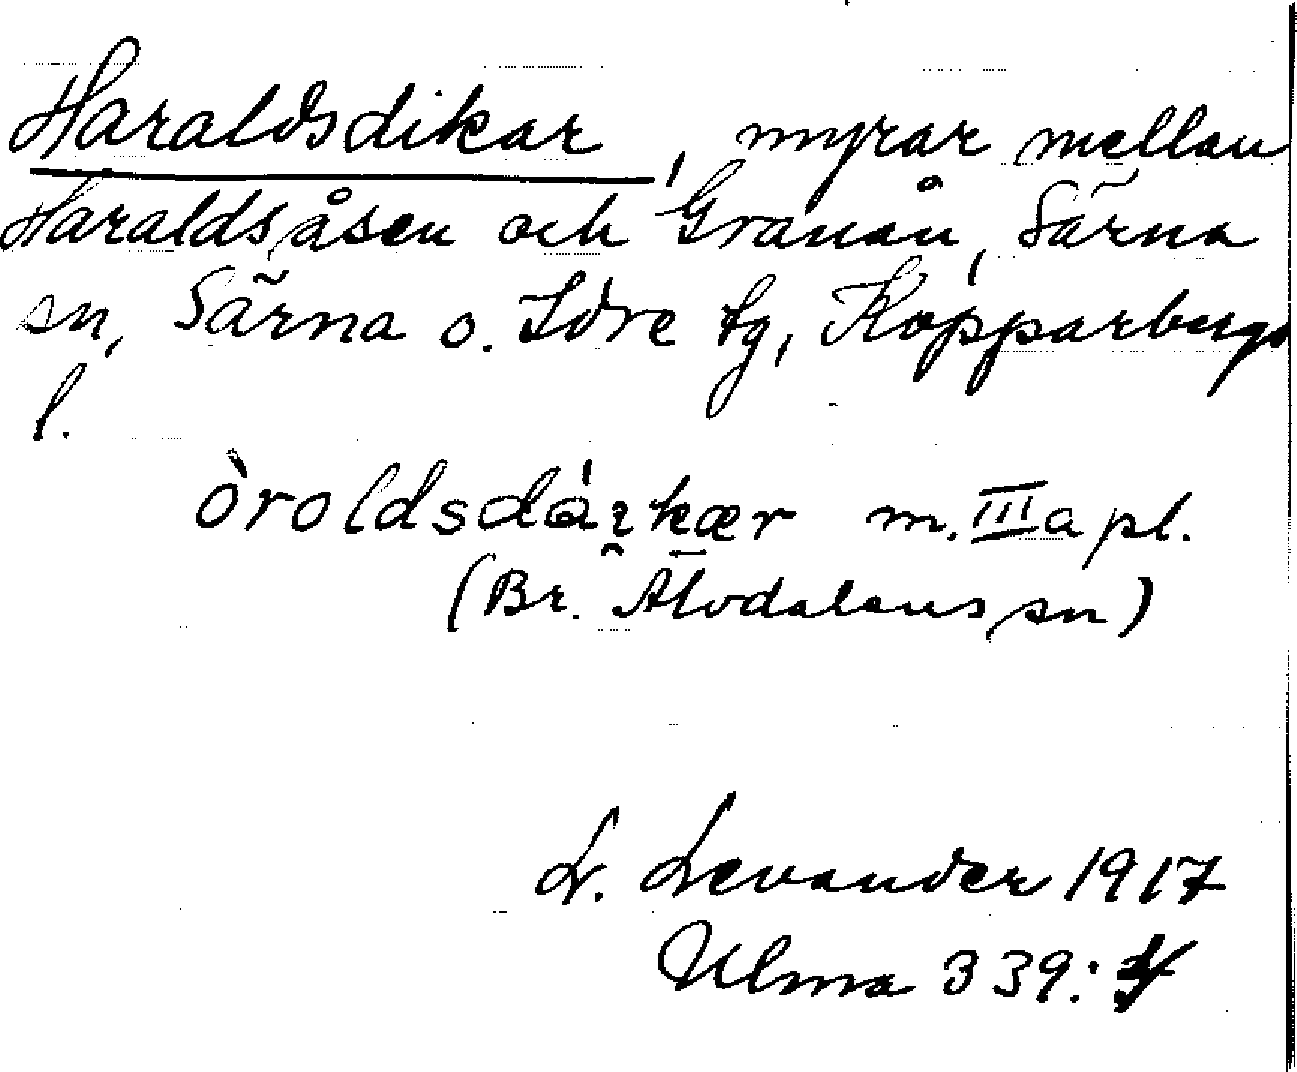 Haraldsdikar, myrar mellan
Haraldsåsen och Granån, Särna
sn, Särna o. Idre tg, Kopparbergs
l.
m. III a pl.
(Br. Älvdalens sn)
L. Levander 1917
Ulma 339: